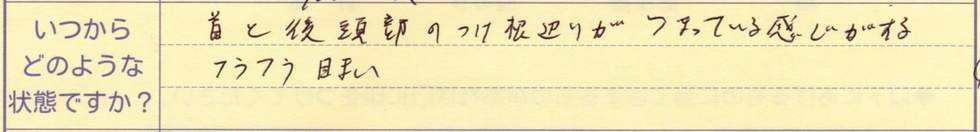 いつから
どのような
状態ですか?
首と後頭部のつけ根辺りがつまっている感じがする
フラフラ目まい